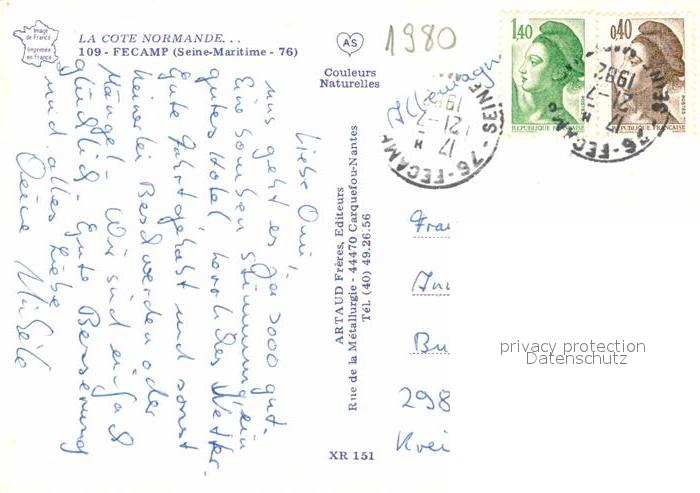 Image
de France
Imprimée
en France
LA COTE NORMANDE. . .
109 - FECAMP (Seine-Maritime - 76)
AS
Couleurs
Naturelles
1980
1,40
REPUBLIQUE FRANÇAISE
0,40
REPUBLIQUE FRANÇAISE
POSTES
76 - FECAMP SEINE
17 H
21 - 7
198
76 - FECAMP SEINE M
17 H
21 - 7
1982
Allemagne
Liebe Omi,
uns geht es ja sooo gut
Eine Bomben Stimmung, ein
gutes Hotel, herrliches Wetter.
Gute Fahrt gehabt und sonst
keinerlei Beschwerden oder
Mängel - Wir sind einfach
glücklich - Gute Besserung
und alles Liebe
Deine
ARTAUD Frères, Editeurs
Rue de la Métallurgie - 44470 Carquefou-Nantes
Tél. (40) 49.26.56
Frau
Bu
298
privacy protection
Datenschutz
XR 151